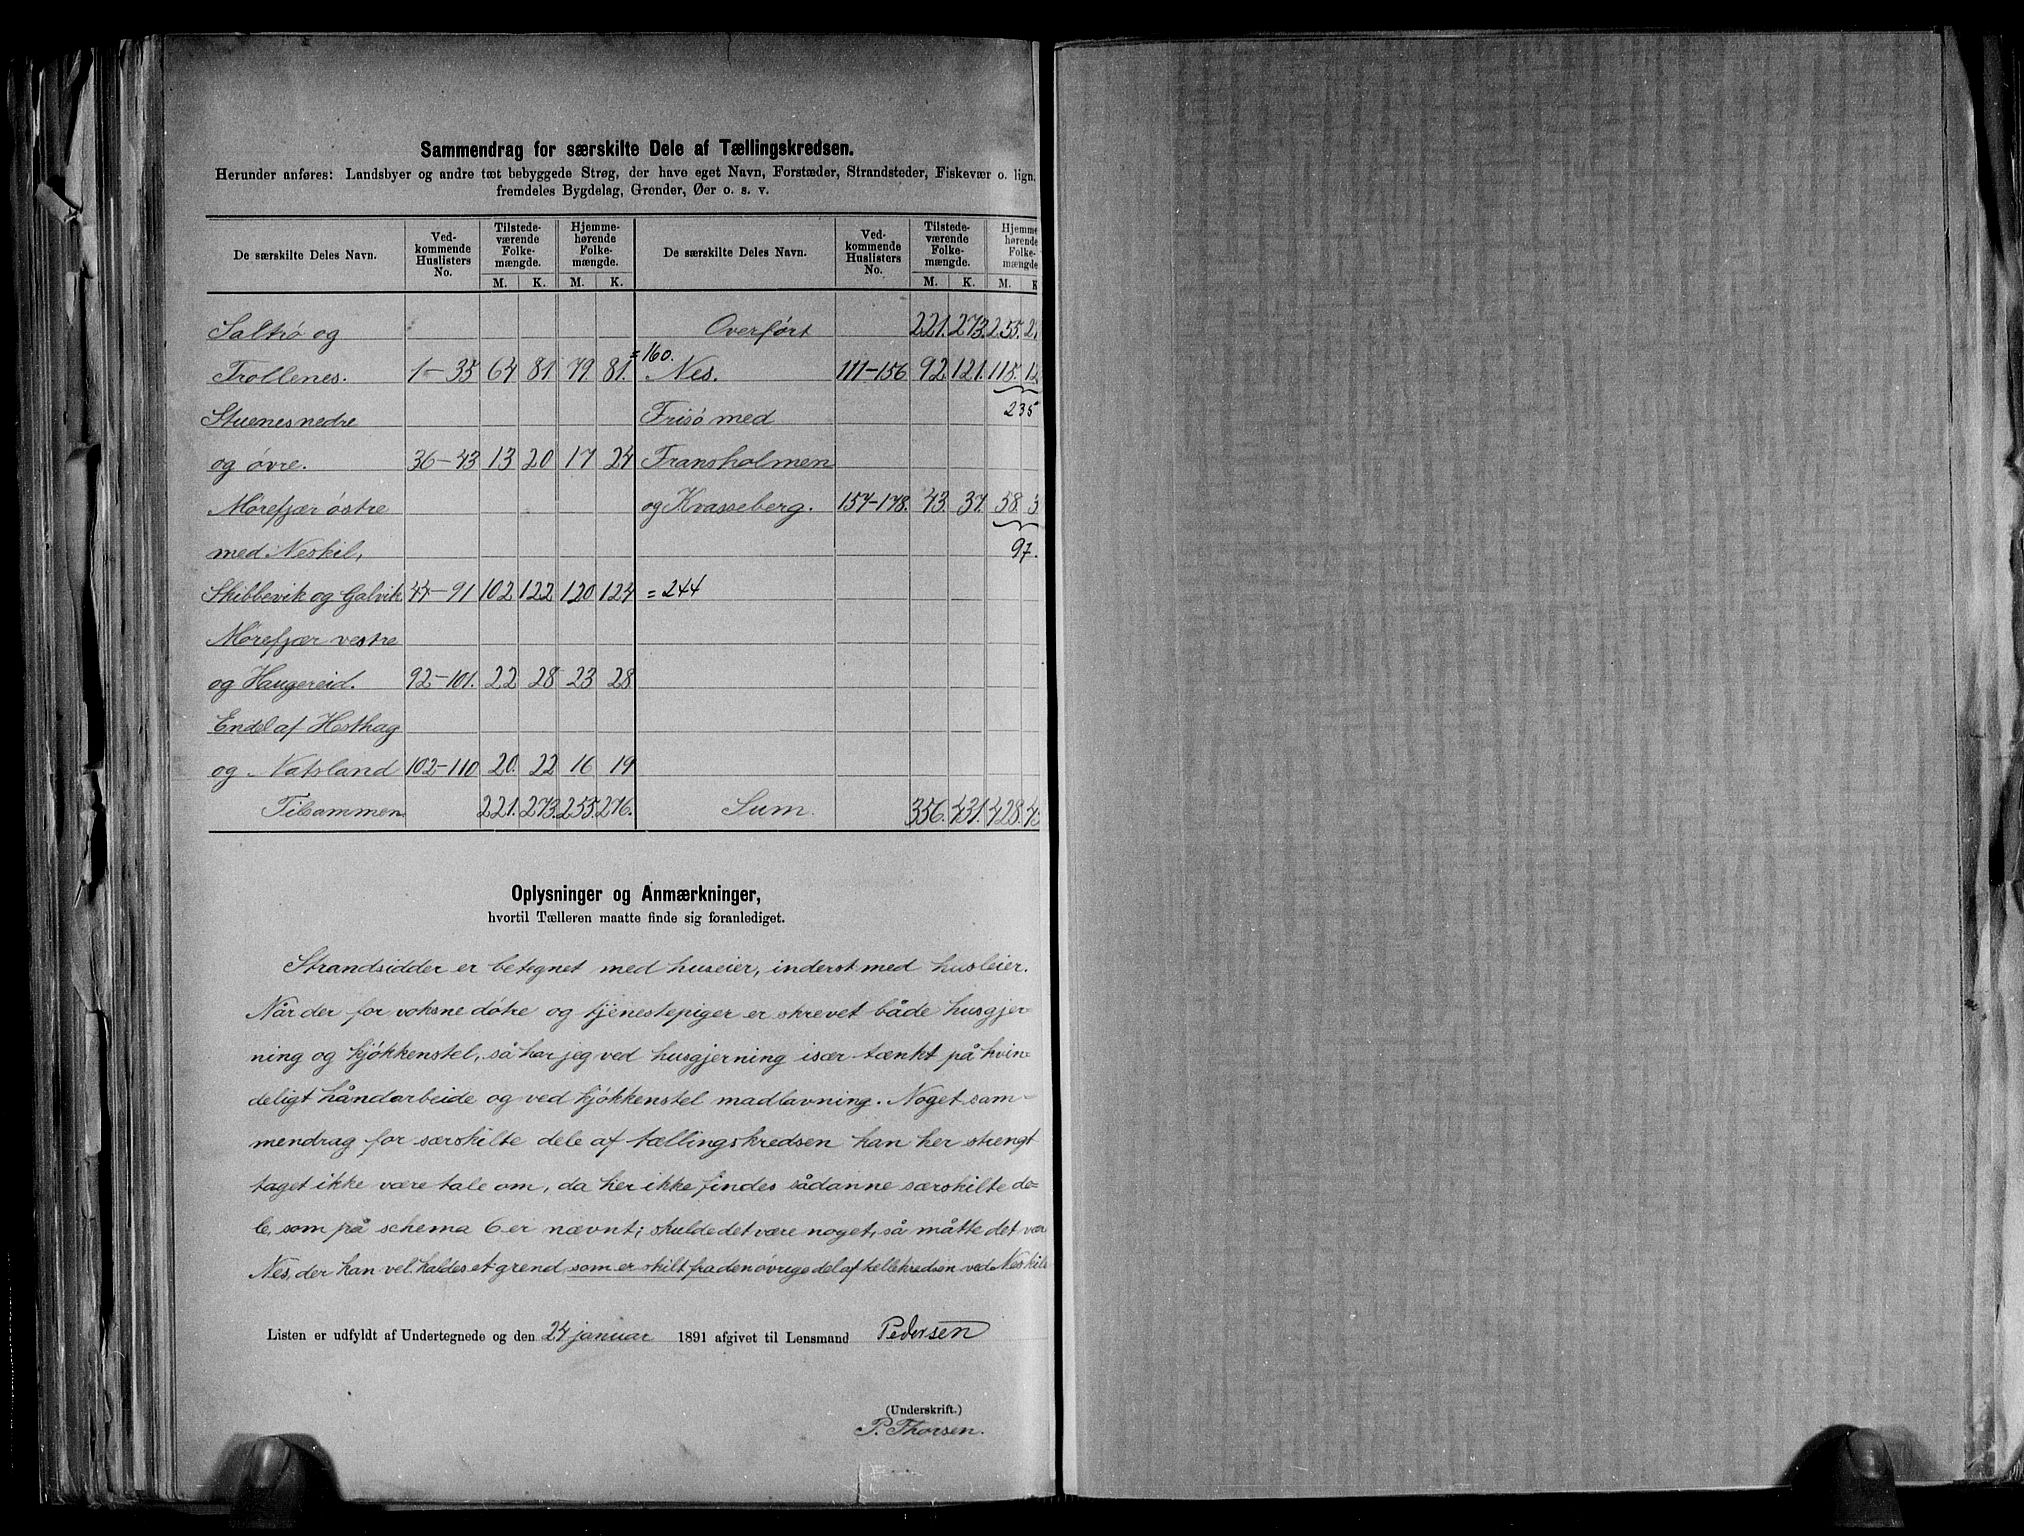 Sammendrag for særskilte Dele af Tællingskredsen.
Herunder anføres: Landsbyer og andre tæt bebyggede Strøg, der have eget Navn, Forstæder, Strandsteder, Fiskevær o. lign.
fremdeles Bygdelag, Grender, Øer o. s. v.
De særskilte Deles Navn. Ved-kommende Huslisters No. Tilstede-værende Folke-mængde. Hjemme-hørende Folke-mængde. De særskilte Deles Navn. Ved-kommende Huslisters No. Tilstede-værende Folke-mængde. Hjemme-hørende Folke-mængde
M. K. M. K. M. K. M. K
Saltrø og Overført 221. 273. 255. 2
Trollenes. 1-35 64 81 79 81. =160. Nes. 111-156 92. 121. 115. 12
Stuenes nedre Frisø med 235
og øvre. 36-43 13 20 17 24 Fransholmen
Mørefjær østre og Kvasseberg. 157-178. 43. 37. 58. 3
med Neskil, 97.
Skibbevik og Galvik 44-91 102 122 120 124 =244
Mørefjær vestre
og Haugereid. 92-101. 22 28 23 28
Endel af Hesthag
og Natsland 102-110 20. 22 16 19
Tilsammen 221. 273. 255. 276. Sum. 356. 431. 428. 4
Oplysninger og Anmærkninger,
hvortil Tælleren maatte finde sig foranlediget.
Strandsidder er betegnet med huseier, inderst med husleier.
Når der for voksne døtre og tjenestepiger er skrevet både husgjer-
ning og kjøkkenstel, så har jeg ved husgjerning især tænkt på kvin-
deligt håndarbeide og ved kjøkkenstel madlavning. Noget sam-
mendrag for særskilte dele af tællingskredsen kan her strengt
taget ikke være tale om, da her ikke findes sådanne særskilte de-
le, som på schema 6 er nævnt; skulde det være noget, så måtte det vær
Nes, der kan vel kaldes et grend som er skilt fra den øvrige del af tellekredsen ved Neskil
Listen er udfyldt af Undertegnede og den 24 januar 1891 afgivet til Lensmand Pedersen
(Underskrift.)
P. Thorsen.